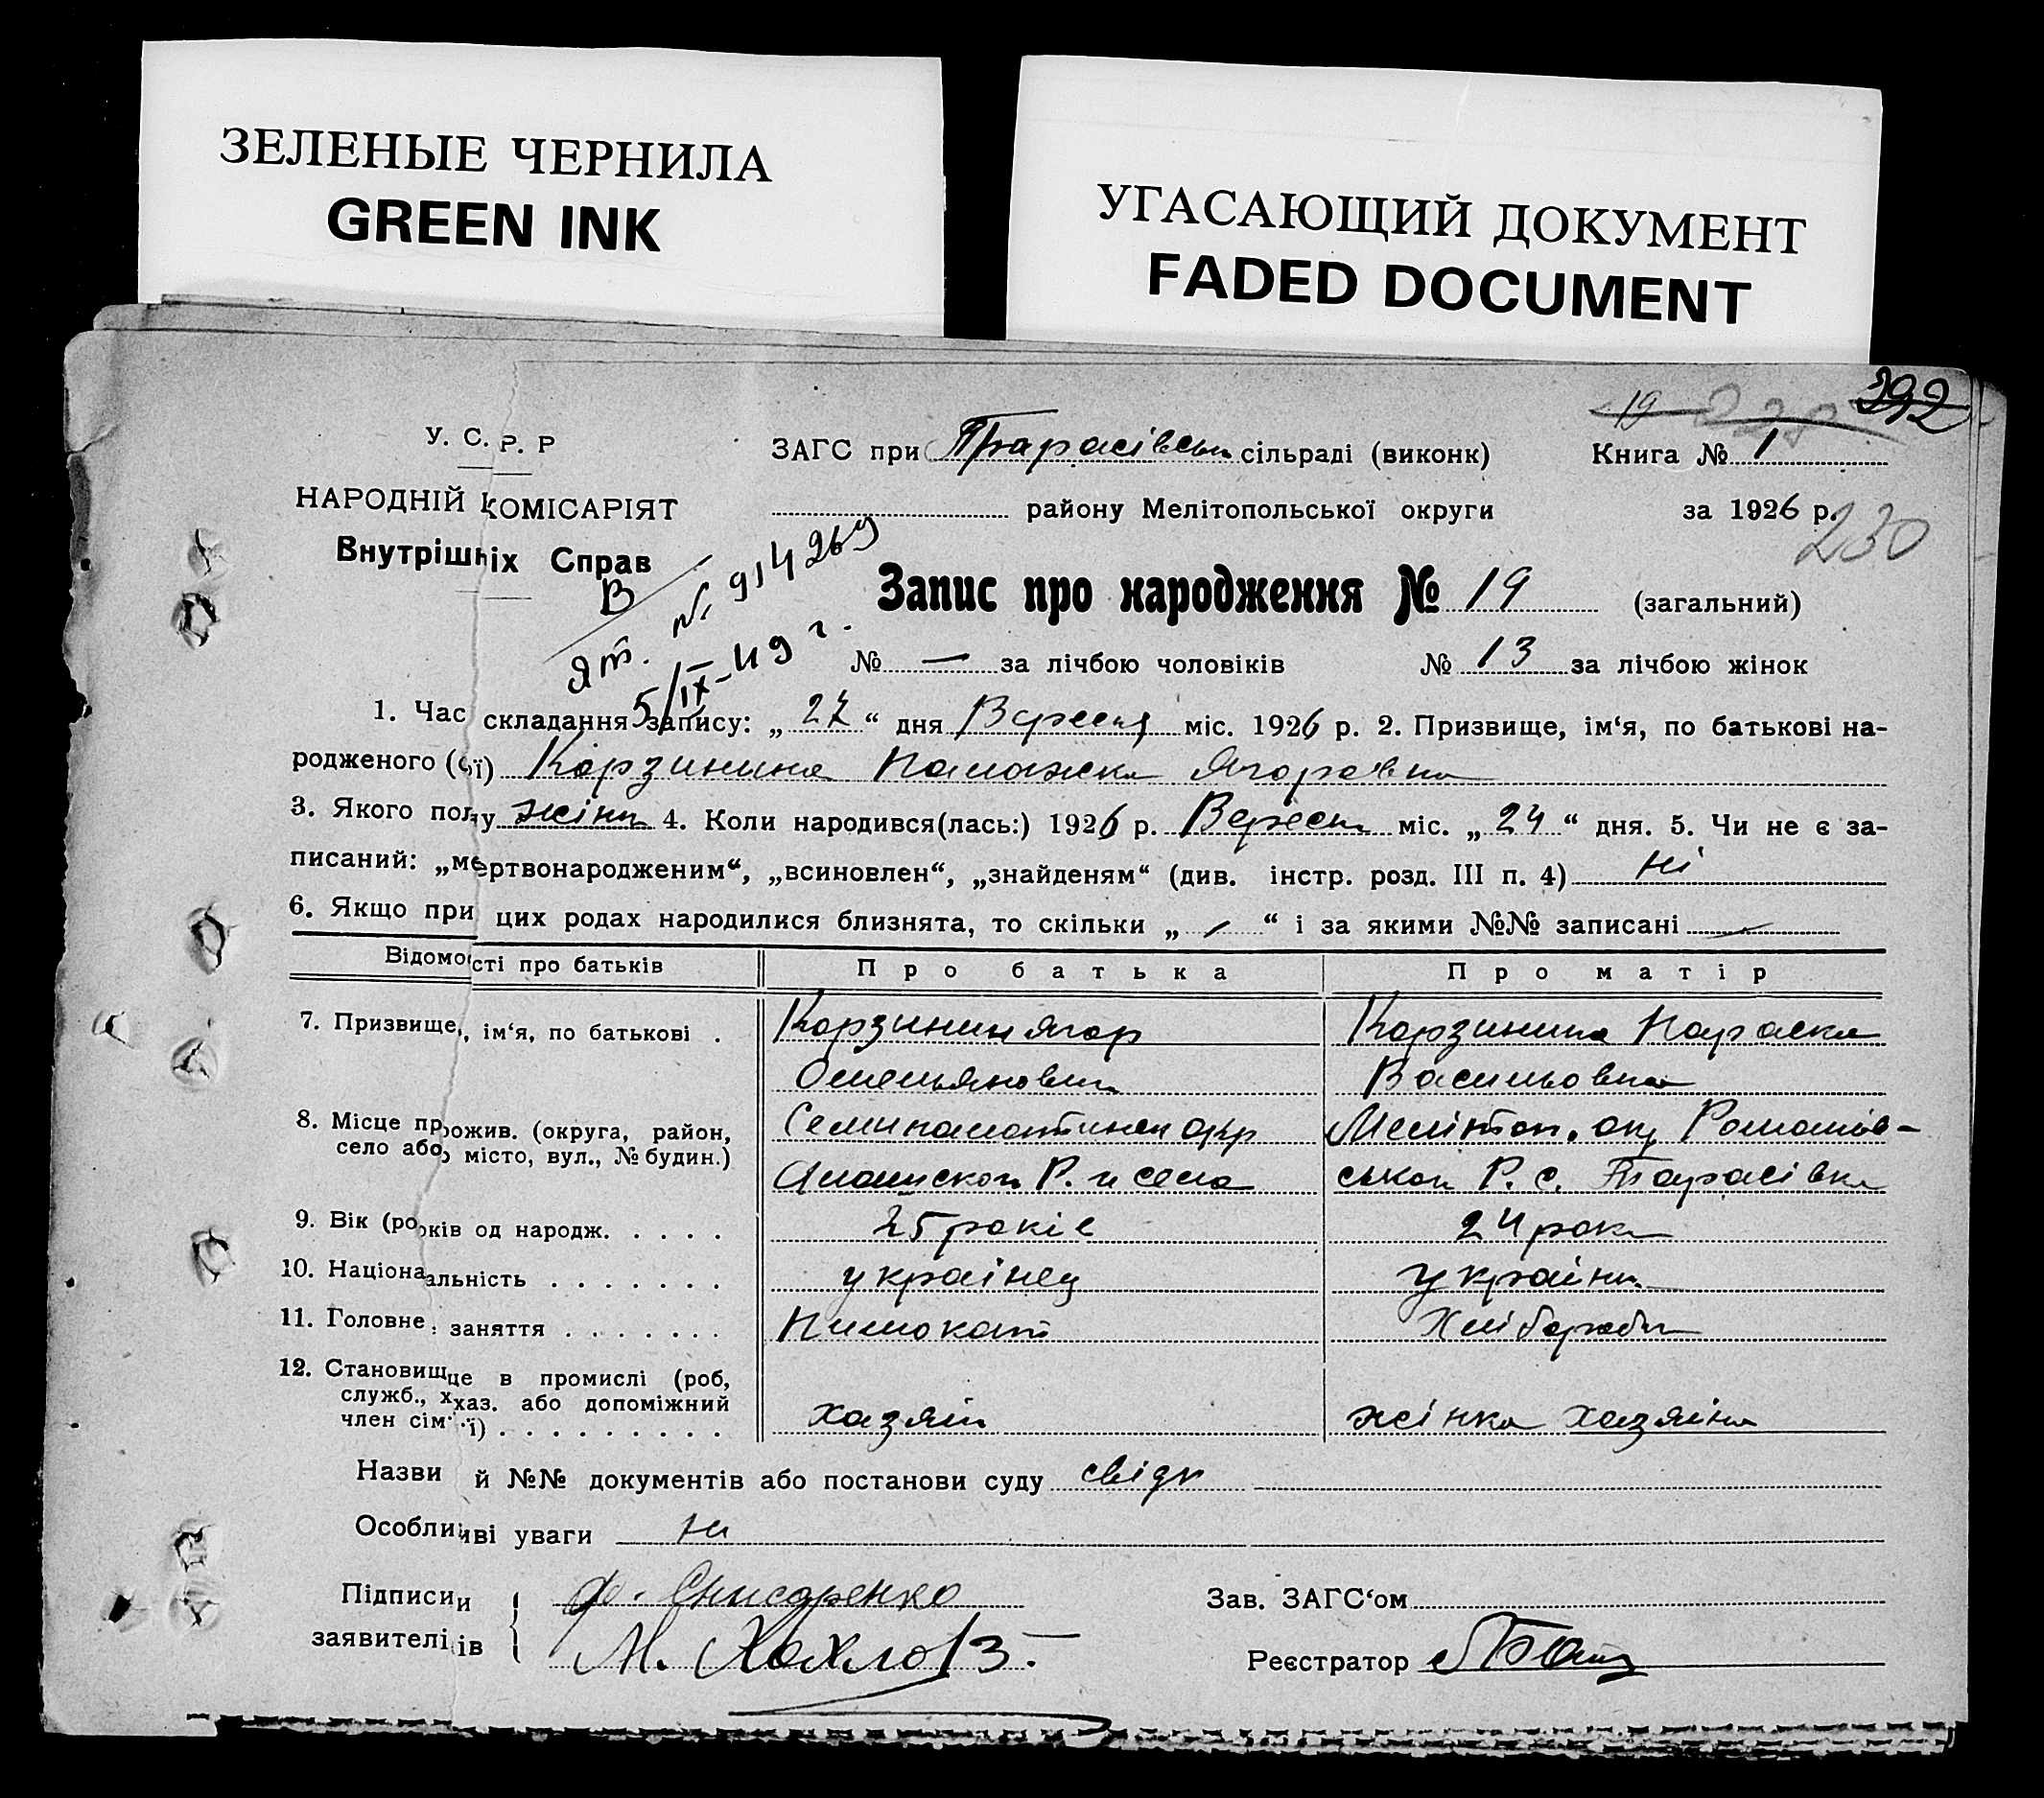 ЗЕЛЕНЫЕ ЧЕРНИЛА
GREEN INK
УГАСАЮЩИЙ ДОКУМЕНТ
FADED DOCUMENT
19 292
У. С. Р. Р ЗАГС при Тарасівськ сільраді (виконк) Книга № 1
НАРОДНІЙ КОМІСАРІЯТ району Мелітопольської округи за 1926 р.
230
Внутрішніх Справ
В
Ят. № 914269
5/IX-49 г.
Запис про народження № 19 (загальний)
№ — за лічбою чоловіків № 13 за лічбою жінок
1. Час складання запису: „27“ дня Вересня міс. 1926 р. 2. Призвище, ім‘я, по батькові на-
родженого (ої) Корзинина Палажка Ягоровна
3. Якого полу жіно 4. Коли народився(лась:) 1926 р. Вересн міс. „24“ дня. 5. Чи не є за-
писаний: „мертвонародженим“, „всиновлен“, „знайденям“ (див. інстр. розд. III п. 4) ні
6. Якщо при цих родах народилися близнята, то скільки „ — “ і за якими №№ записані —
Відомості про батьків Про батька Про матір
7. Призвище, ім‘я, по батькові . Корзинин Ягор Корзинина Параска
Омельянович Васильовна
8. Місце прожив. (округа, район, Семипалатинск окр Мелітоп. окр Романів-
село або місто, вул., № будин.) Р. и села ськой Р. с. Тарасівка
9. Вік (років од народж. . . . . 25 років 24 рок
10. Національність . . . . . . . українец україн.
11. Головне заняття . . . . . . . Пимокат Хлібороб
12. Становище в промислі (роб,
служб., хаз. або допоміжний
член сім‘ї) . . . . . . . . . хазяін жінка хазяіна
Назви й №№ документів або постанови суду свідк
Особливі уваги ні
Підписи Ф. Снисаренко Зав. ЗАГС‘ом
заявителів М. Хохлов Реєстратор